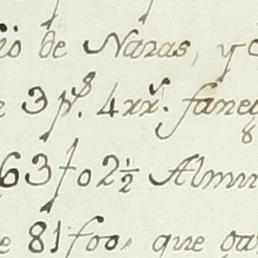 io de Naras, y
e 3 p.s 4 xx.s faneg
8
63 f o 2½ Almu
e 81 foo, que pa